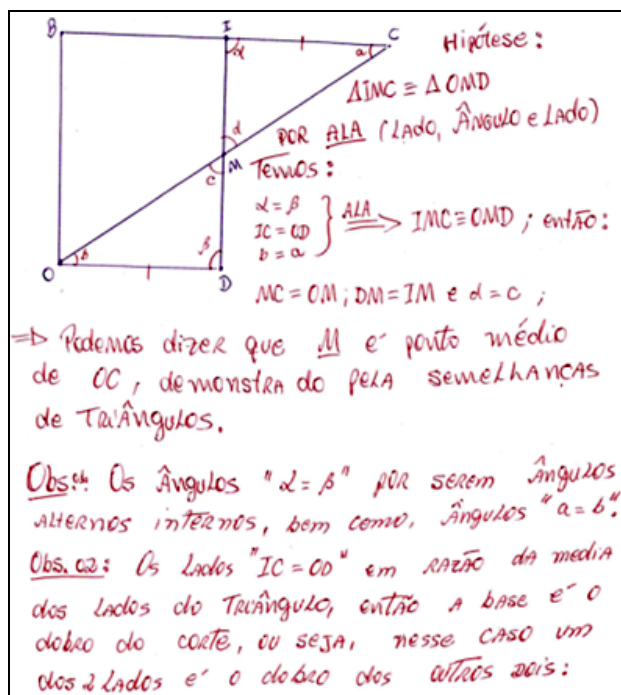 B I C
α a
Hipótese:
ΔIMC ≡ ΔOMD
d
POR ALA (LADO, ÂNGULO e LADO)
M
c
Temos:
α = β
IC = OD
b = a
ALA
=> IMC ≡ OMD ; então:
b β
O D
MC = OM ; DM = IM e d = c ;
=> Podemos dizer que M é ponto médio
de OC, demonstra do pela semelhanças
de TRIÂNGULOS.
Obs: Os Ângulos "α = β" por serem ângulos
alternos internos, bem como, ângulos "a = b".
Obs. 02: Os lados "IC = OD" em RAZÃO da media
dos lados do TRIÂNGULO, então a base é o
dobro do corte, ou seja, nesse caso um
dos 2 lados é o dobro dos outros dois: